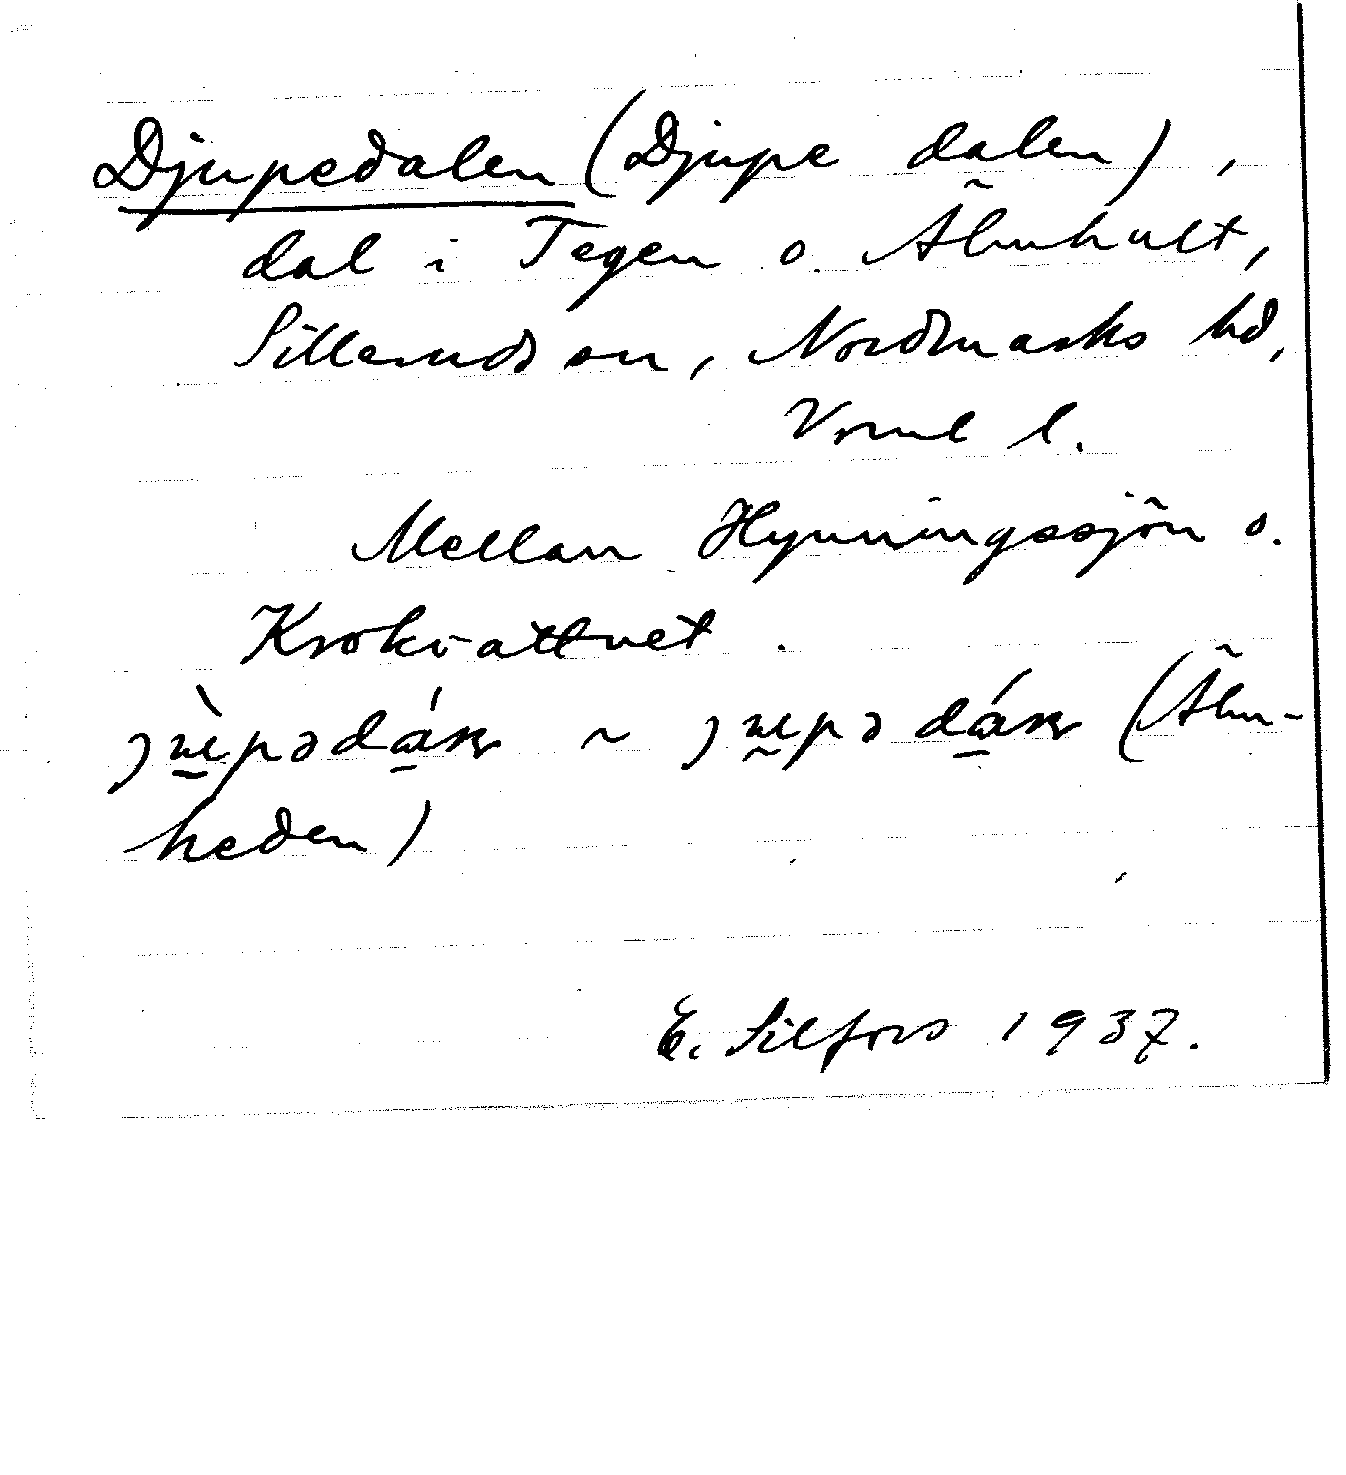 Djupedalen (Djupe dalen),
dal i Tegen o. Älmhult,
Sillerud sn, Nordmarks hd,
Vrml l.
Mellan Hynningssjön o.
Krokvattnet.
(Älm-
heden)
E. Silfors 1937.